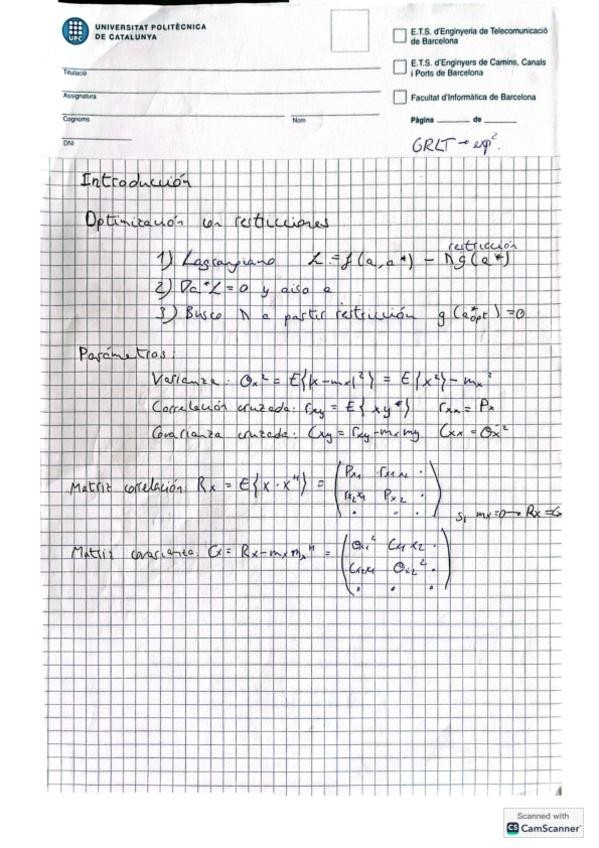 UNIVERSITAT POLITÈCNICA
DE CATALUNYA
UPC
E.T.S. d'Enginyeria de Telecomunicació
de Barcelona
E.T.S. d'Enginyers de Camins, Canals
i Ports de Barcelona
Facultat d'Informàtica de Barcelona
Titulació
Assignatura
Cognoms Nom
Pàgina de
DNI
GRLT → exp².
Introducción
Optimización con restricciones
restricción
1) Lagrangiano L = f(a, a*) − λg(a*)
2) ∇a*L = 0 y aíslo a
3) Busco λ a partir restricción g(a*opt) = 0
Parámetros:
Varianza: σx² = E{|x−mx|²} = E{x²} − mx²
Correlación cruzada: rxy = E{xy*} rxx = Px
Covarianza cruzada: Cxy = rxy − mx my Cxx = σx²
Matriz correlación: Rx = E{x · xᴴ} = (Px1 rx1x2 ·
rx2x1 Px2 ·
· · ·)
Si mx = 0 → Rx = Cx
Matriz covarianza: Cx = Rx − mx mxᴴ = (σx1² Cx1x2 ·
Cx2x1 σx2² ·
· · ·)
Scanned with
CS CamScanner